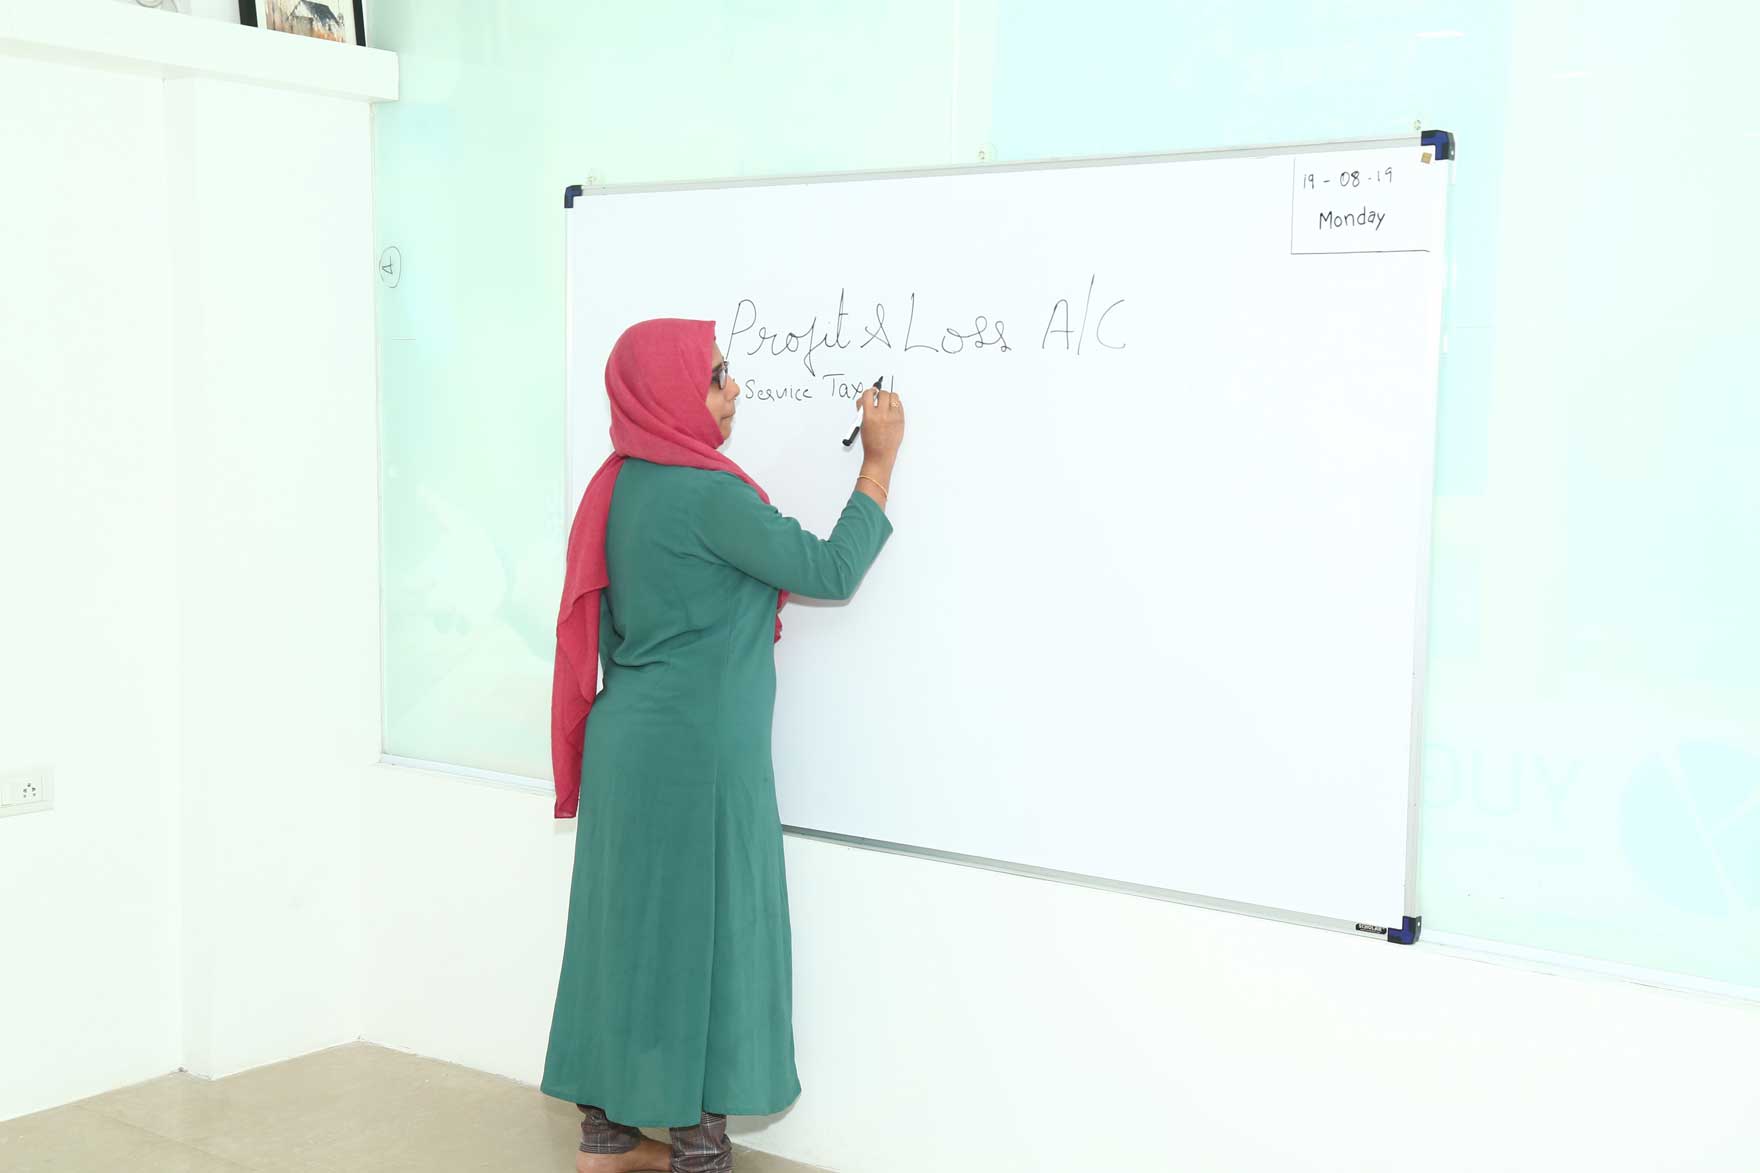 19-08-19
Monday
Profit & Loss A/C
Service Tax